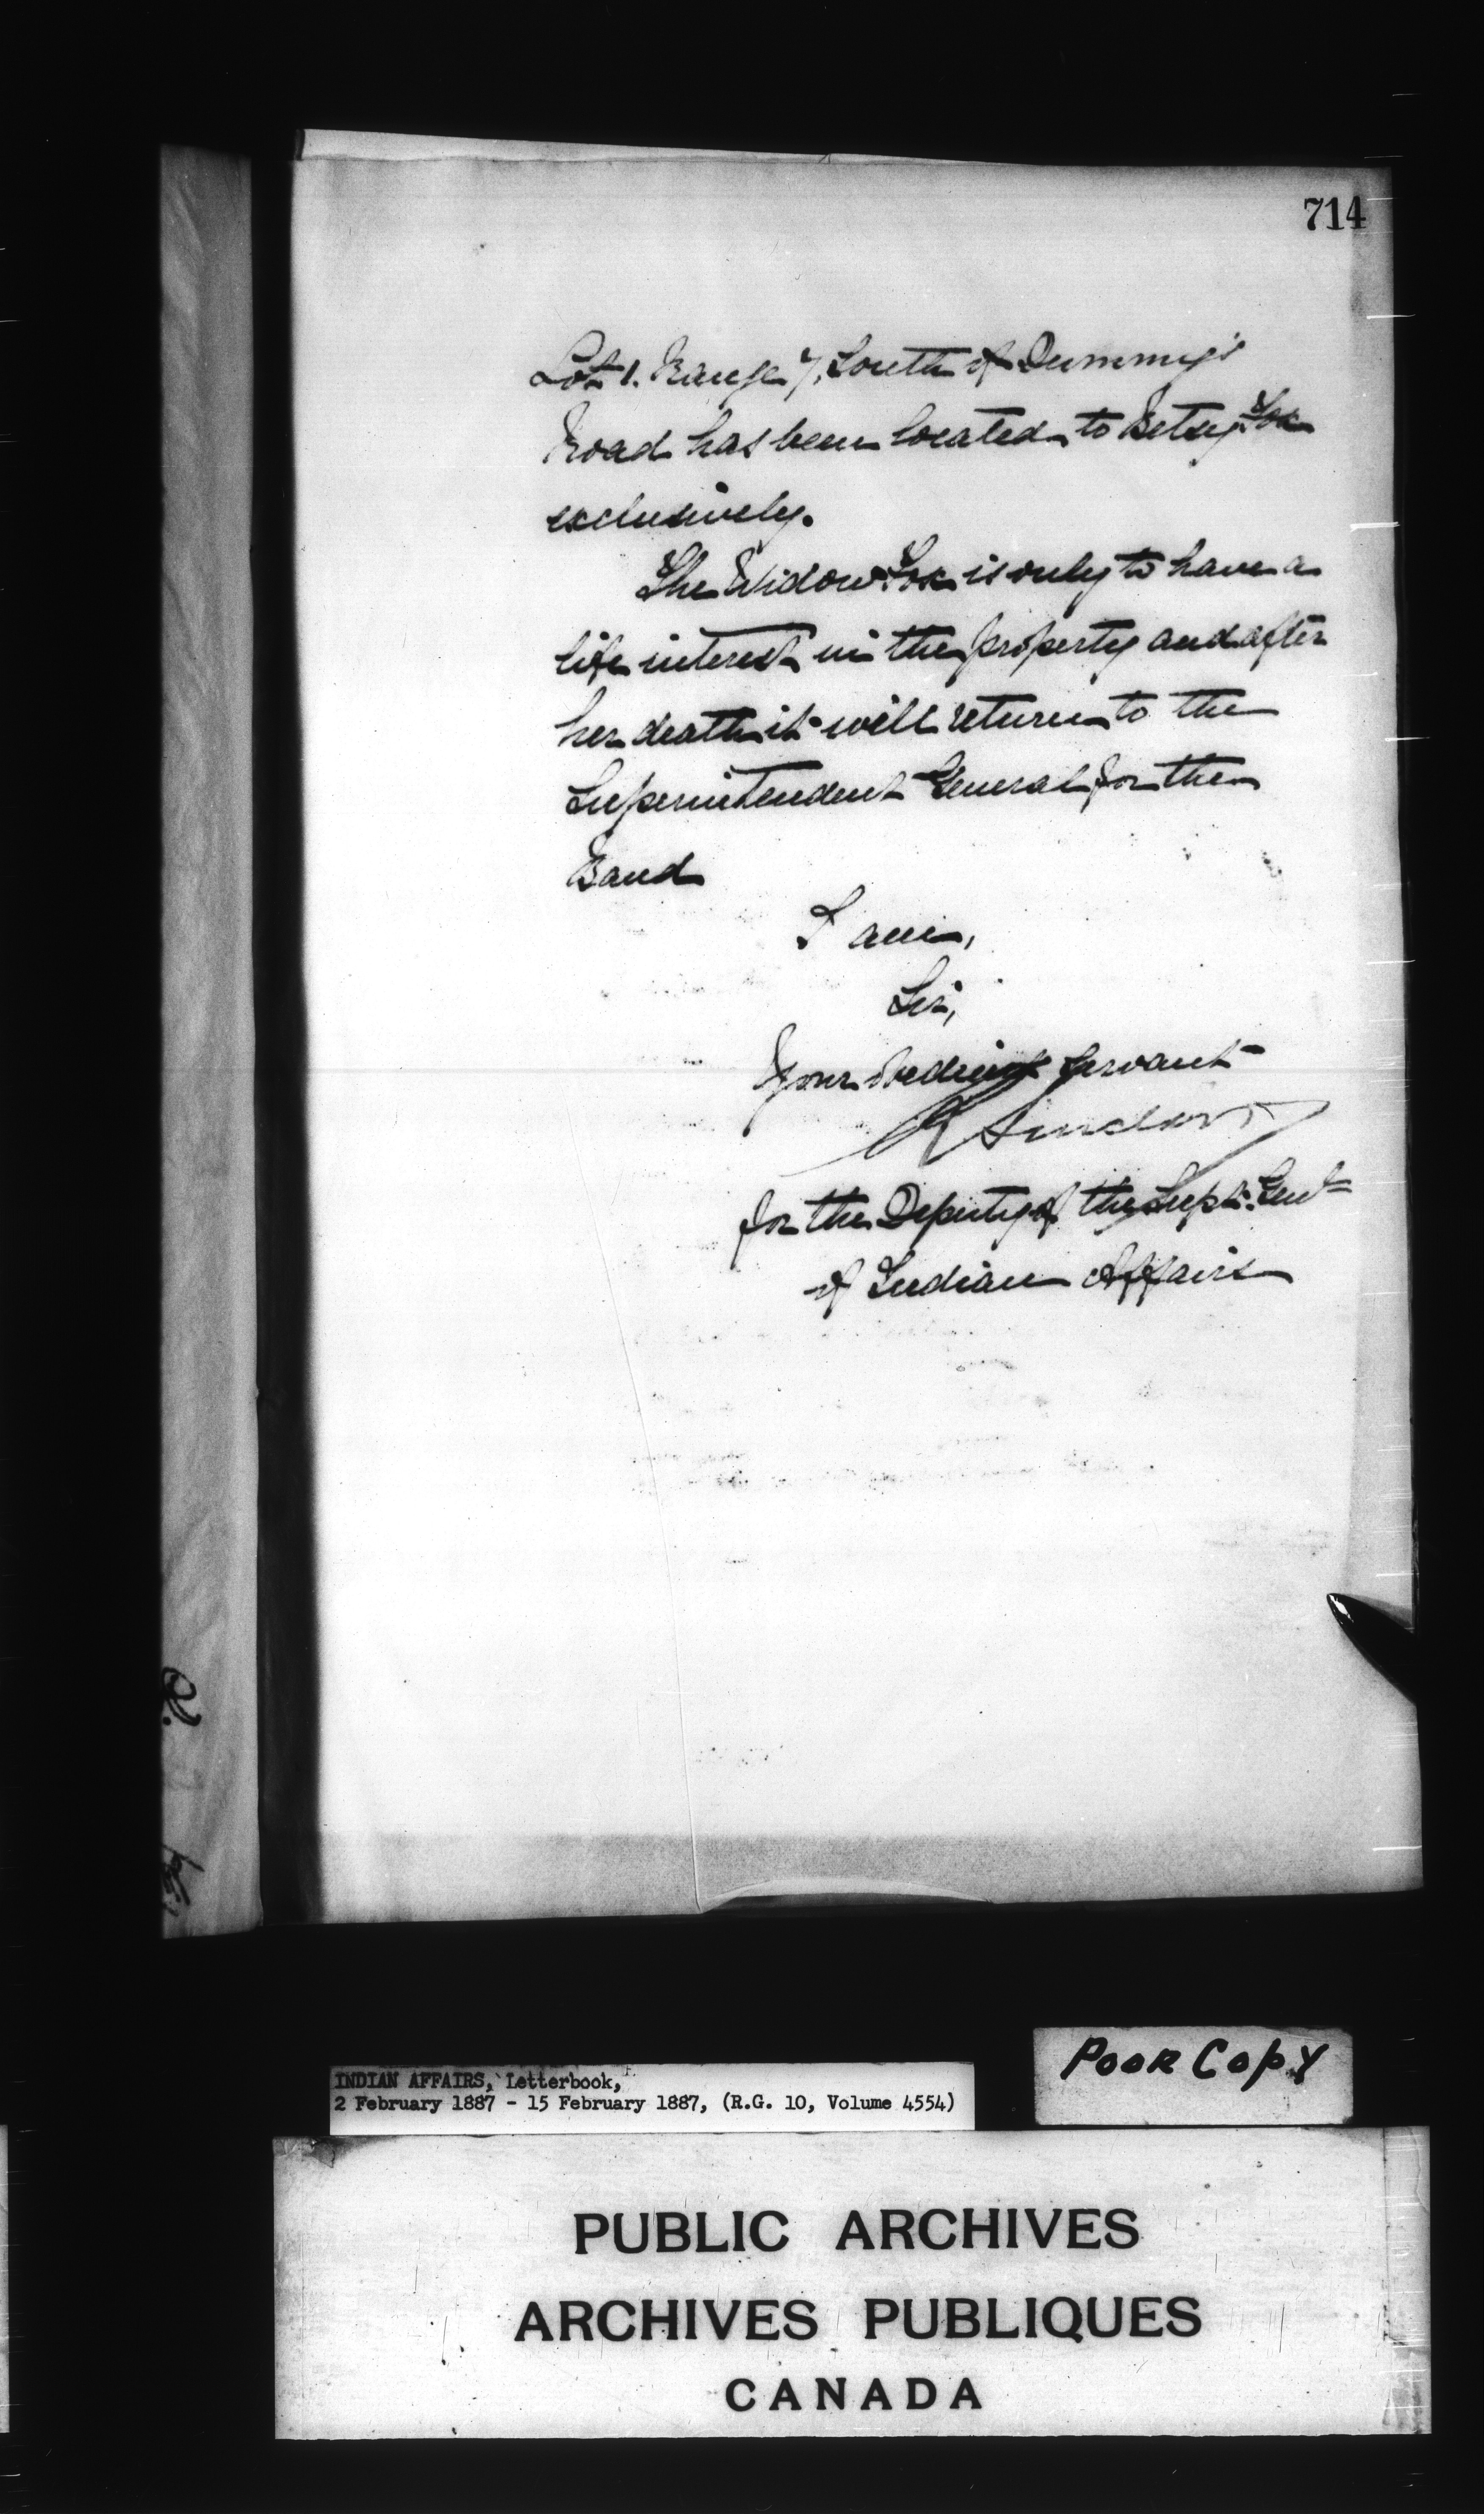 714
Lot 1. Range 7, South of Dummy's
Road has been located to Betsy Fox
exclusively.
The Widow Fox is only to have a
life interest in the property and after
her death it will return to the
Superintendent General for the
Band
I am,
Sir,
Your obedient servant
R Sinclair
for the Deputy of the Supt. Genl
of Indian Affairs
Poor Copy
INDIAN AFFAIRS, Letterbook,
2 February 1887 - 15 February 1887, (R.G. 10, Volume 4554)
PUBLIC ARCHIVES
ARCHIVES PUBLIQUES
CANADA